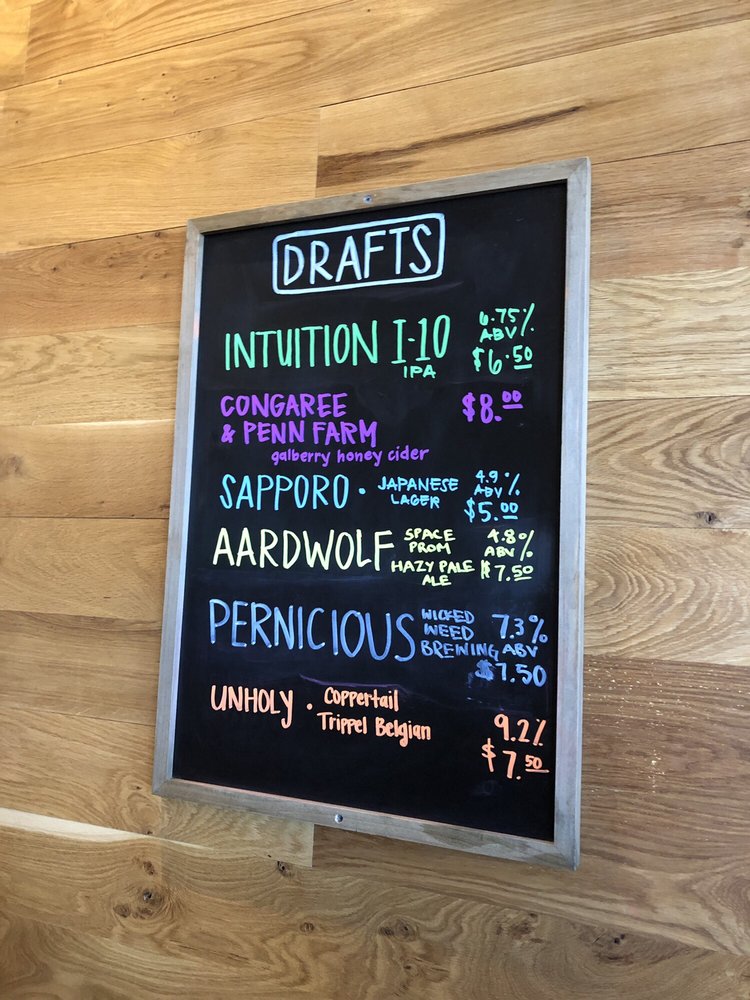 DRAFTS
INTUITION I-10 6.75%
IPA ABV
$6.50
CONGAREE $8.00
& PENN FARM
galberry honey cider
SAPPORO • JAPANESE LAGER 4.9% ABV
$5.00
AARDWOLF SPACE PROM 4.8% ABV
HAZY PALE ALE $7.50
PERNICIOUS WICKED WEED BREWING 7.3% ABV
$7.50
UNHOLY • Coppertail
Trippel Belgian 9.2%
$7.50